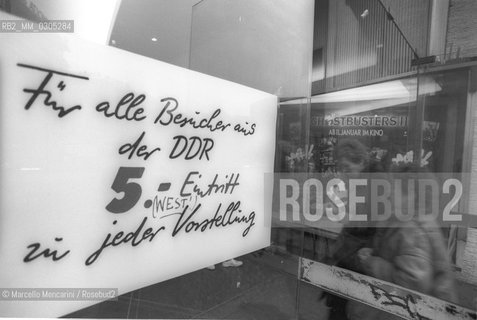 RB2_MM_6305284
Für alle Besucher aus
der DDR
5.- Eintritt
(WEST)
zu jeder Vorstellung
GHOSTBUSTERS II
AB 11.JANUAR IM KINO
ROSEBUD2
© Marcello Mencarini / Rosebud2